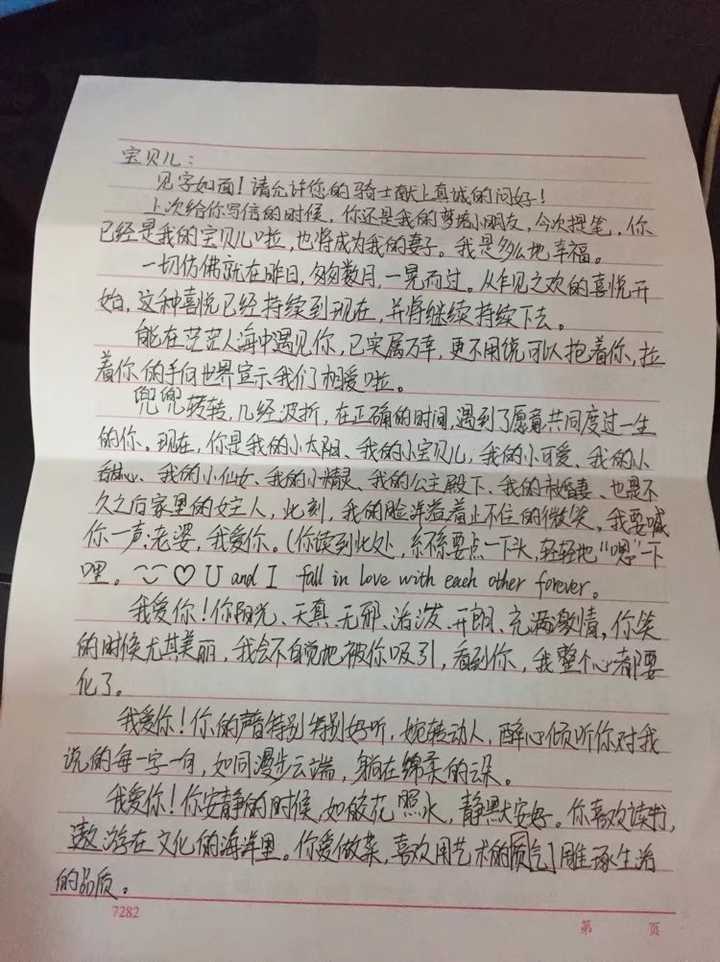 宝贝儿：
见字如面！请允许您的骑士献上真诚的问好！
上次给你写信的时候，你还是我的梦境小朋友，今次提笔，你
已经是我的宝贝儿啦，也将成为我的妻子。我是多么地幸福。
一切仿佛就在昨日，匆匆数月，一晃而过。从乍见之欢的喜悦开
始，这种喜悦已经持续到现在，并将继续持续下去。
能在茫茫人海中遇见你，已实属万幸，更不用说可以抱着你，拉
着你的手向世界宣示我们相爱啦。
兜兜转转，几经波折，在正确的时间，遇到了愿意共同度过一生
的你。现在，你是我的小太阳、我的小宝贝儿，我的小可爱、我的小
甜心、我的小仙女、我的小精灵、我的公主殿下、我的未婚妻、也是不
久之后家里的女主人，此刻，我的脸洋溢着止不住的微笑，我要喊
你一声：老婆，我爱你。（你读到此处，需要点一下头，轻轻地“嗯”一下
哩。♡ U and I fall in love with each other forever。
我爱你！你阳光、天真、无邪、活泼、开朗、充满激情，你笑
的时候尤其美丽，我会不自觉地被你吸引，看到你，我整个心都要
化了。
我爱你！你的声音特别特别好听，婉转动人，醉心倾听你对我
说的每一字一句，如同漫步云端，躺在绵柔的云朵。
我爱你！你安静的时候，如姣花照水，静默安好。你喜欢读书，
遨游在文化的海洋里。你爱做菜，喜欢用艺术的质气雕琢生活
的品质。
7282
第 页